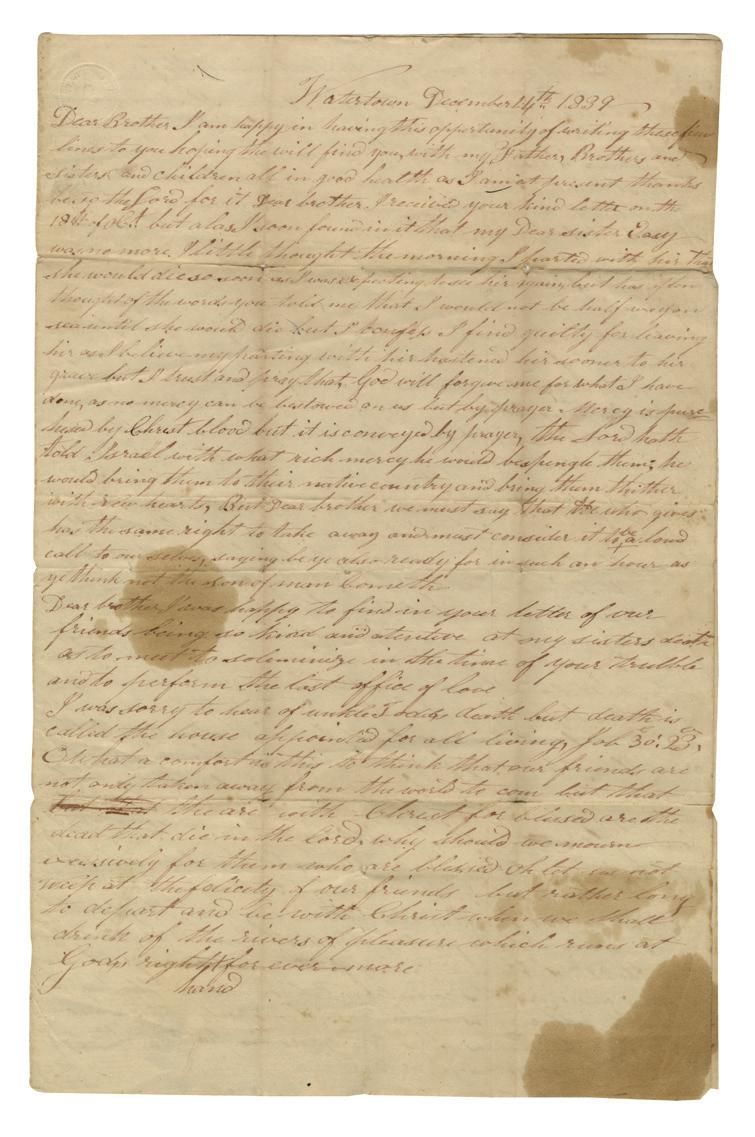 Watertown December 14th 1839
Dear Brother I am happy in having this opportunity of writing these few
lines to you hoping the will find you, with my Father, Brothers and
sisters and children all in good health as I am at present thanks
be to the Lord for it Dear brother I received your kind letter on the
18th of Oct but alas I soon found in it that my Dear sister
was no more I little thought the morning I parted with her that
she would die so soon as I was expecting to see her again, but has often
thought of the words you told me that I would not be half way on
sea until she would die but I confess I find guilty for leaving
her as I believe my parting with her hastened her sooner to her
grave but I trust and pray that God will forgive me for what I have
done, as no mercy can be bestowed on us but by prayer Mercy is purc
hased by Christ blood but it is conveyed by prayer, the Lord hath
told Israel with what rich mercy he would bespangle them; he
would bring them to their native country and bring them thither
with new hearts, But Dear brother we must say that He who gives
has the same right to take away and must consider it to be a loud
call to ourselves, saying be ye also ready for in such an hour as
ye think not the son of man Cometh
Dear brother, I was happy to find in your letter of our
friends being so kind and atentive at my sisters death
as to meet to solemnize in the time of your trubble
and to perform the last office of love
I was sorry to hear of unkle death but death is
called the house appointed for all living, Job 30: 23,
O what a comfort is this to think that our friends are
not only taken away from the world to com but that
the are with Christ for blessed are the
dead that die in the lord, why should we mourn
exessively for them who are blessed oh let us not
weep at the felicity of our friends but rather long
to depart and be with Christ when we shall
drink of the rivers of pleasure which runs at
Gods right for ever more
hand